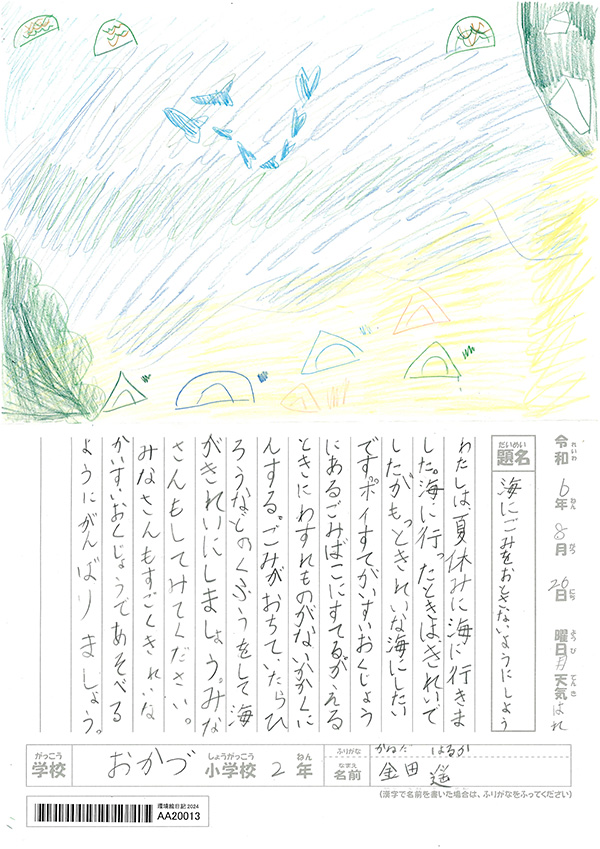 令和6年8月26日 曜日月 天気はれ
れいわ ねん がつ にち ようび てんき
だいめい
題名
海にごみをおとさないようにしよう
わたしは、夏休みに海に行きま
した。海に行ったときは、きれいで
したがもっときれいな海にしたい
です。ポイすてかいすいおくじょう
にあるごみばこにすてるが、える
ときにわすれものがないかかくに
んする。ごみがおちていたらひ
ろうなどのくふうをして海
がきれいにしましょう。みな
さんもしてみてください。
みなさんもすごくきれいな
かいすいおくじょうであそべる
ようにがんばりましょう。
がっこう しょうがっこう ねん
学校 おかづ 小学校 2年
ふりがな かねだ はるか
なまえ
名前 金田 遥
(漢字で名前を書いた場合は、ふりがなをふってください)
環境絵日記2024
AA20013